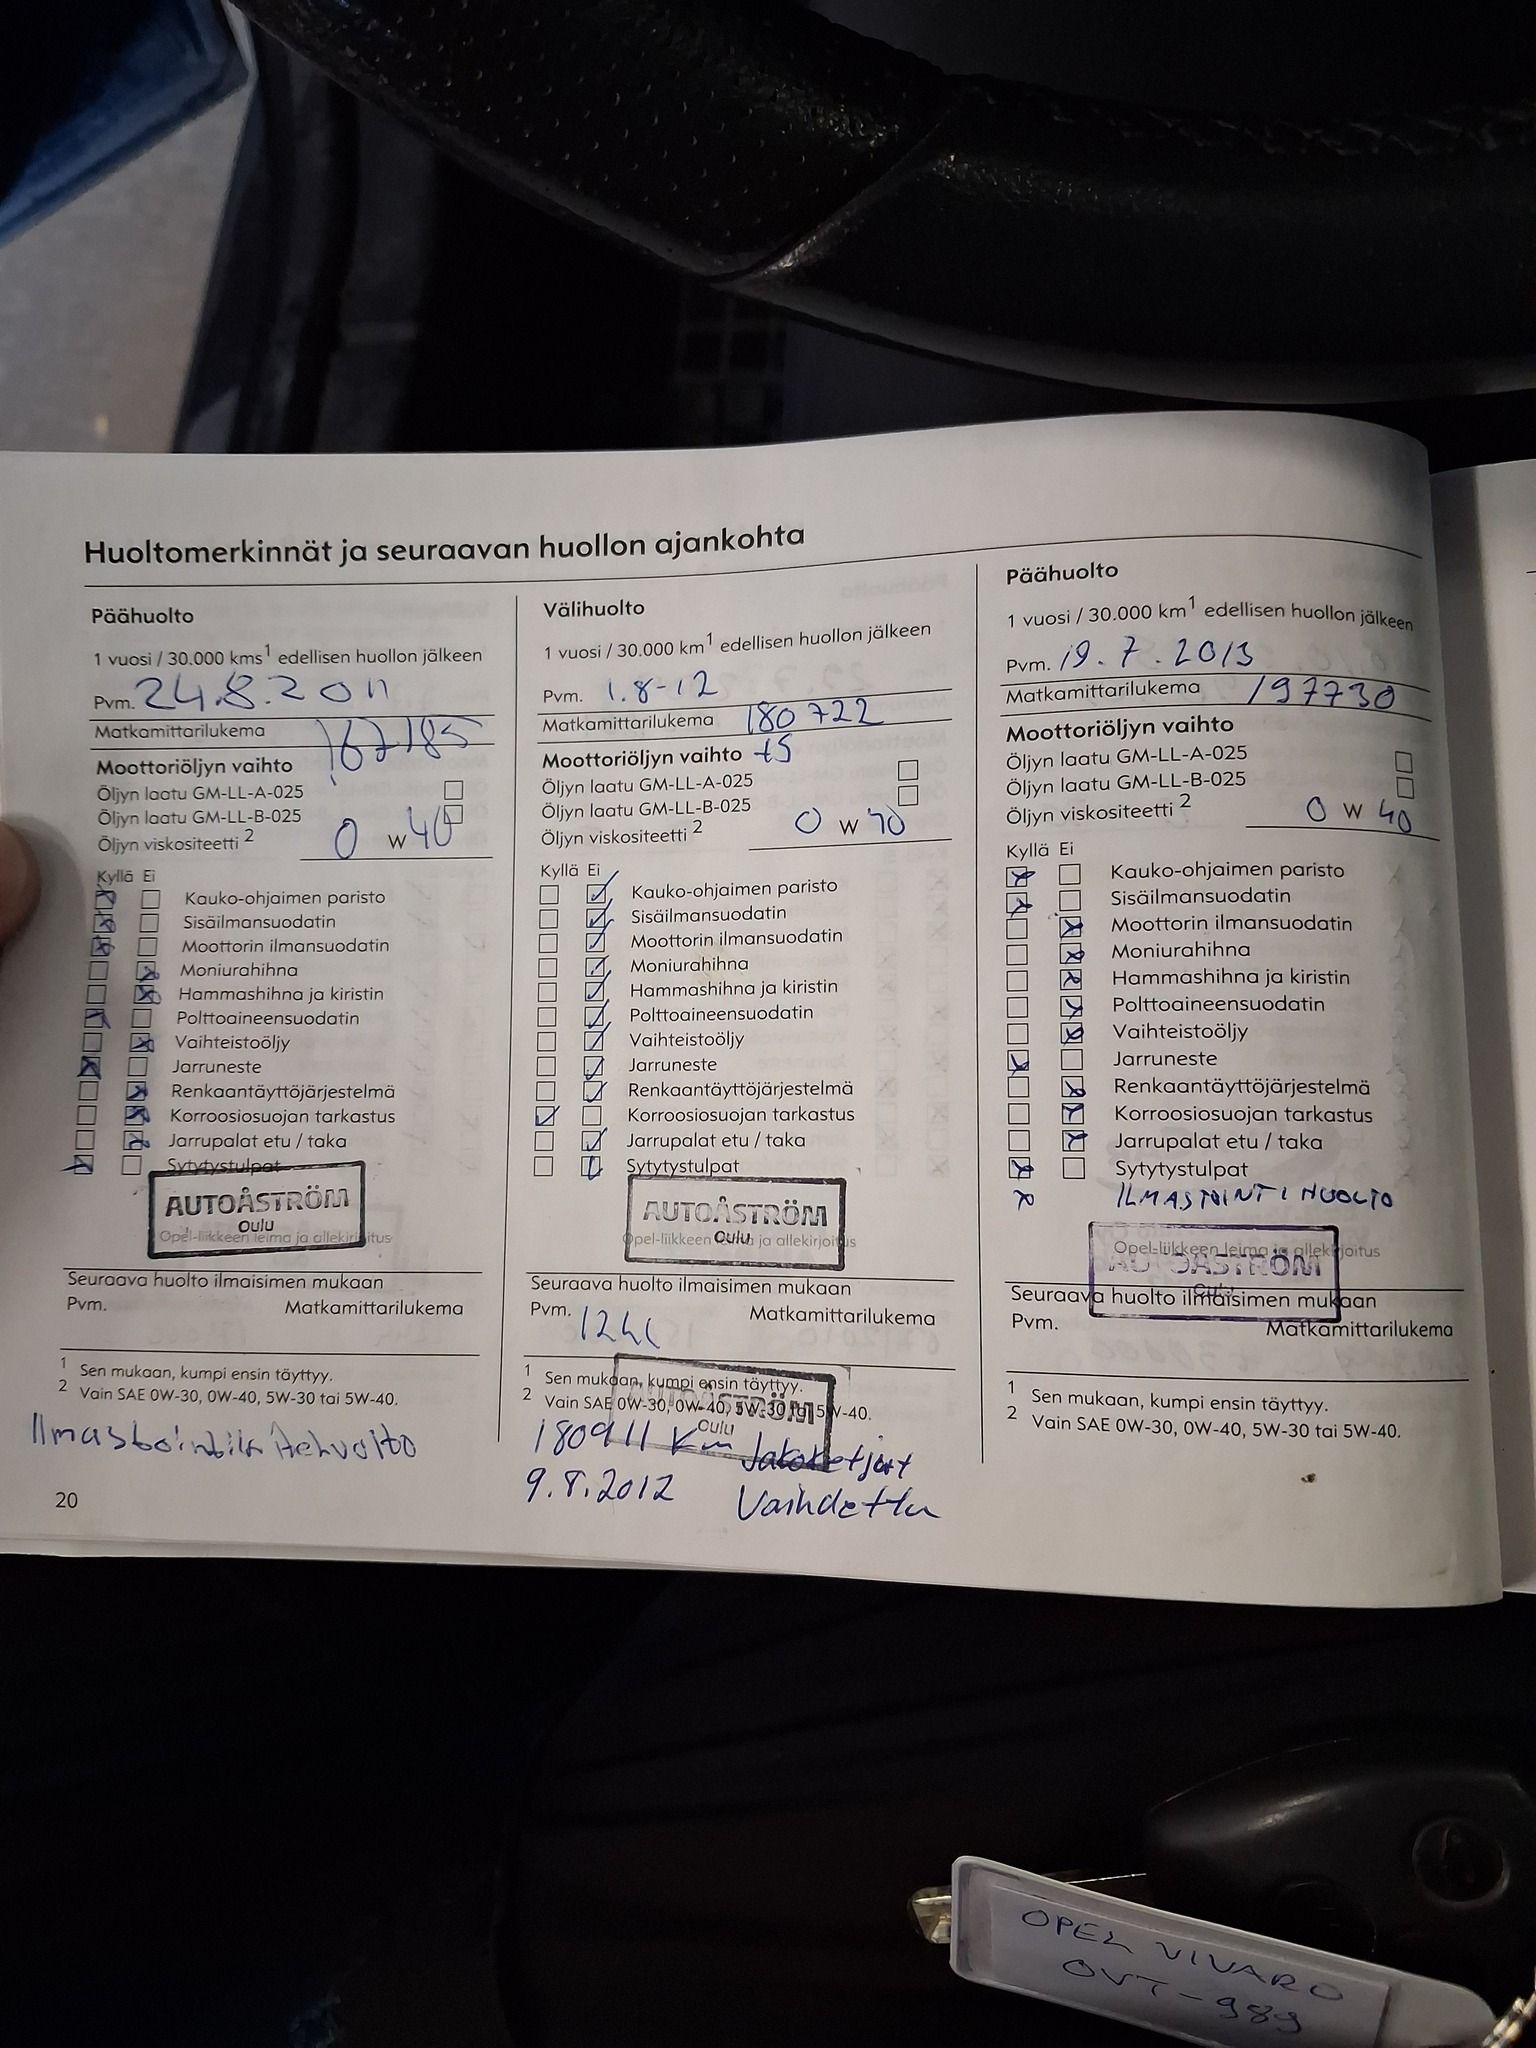 Huoltomerkinnät ja seuraavan huollon ajankohta
Päähuolto
1 vuosi / 30.000 kms1 edellisen huollon jälkeen
Pvm. 24.8.2011
Matkamittarilukema 167185
Moottoriöljyn vaihto
Öljyn laatu GM-LL-A-025
Öljyn laatu GM-LL-B-025
Öljyn viskositeetti 2 0 W 40
Kyllä Ei
Kauko-ohjaimen paristo
Sisäilmansuodatin
Moottorin ilmansuodatin
Moniurahihna
Hammashihna ja kiristin
Polttoaineensuodatin
Vaihteistoöljy
Jarruneste
Renkaantäyttöjärjestelmä
Korroosiosuojan tarkastus
Jarrupalat etu / taka
Sytytystulpat
AUTOÅSTRÖM
Oulu
Opel-liikkeen leima ja allekirjoitus
Seuraava huolto ilmaisimen mukaan
Pvm. Matkamittarilukema
1 Sen mukaan, kumpi ensin täyttyy.
2 Vain SAE 0W-30, 0W-40, 5W-30 tai 5W-40.
20
Välihuolto
1 vuosi / 30.000 km1 edellisen huollon jälkeen
Pvm. 1.8-12
Matkamittarilukema 180722
Moottoriöljyn vaihto +S
Öljyn laatu GM-LL-A-025
Öljyn laatu GM-LL-B-025
Öljyn viskositeetti 2 0 W 40
Kyllä Ei
Kauko-ohjaimen paristo
Sisäilmansuodatin
Moottorin ilmansuodatin
Moniurahihna
Hammashihna ja kiristin
Polttoaineensuodatin
Vaihteistoöljy
Jarruneste
Renkaantäyttöjärjestelmä
Korroosiosuojan tarkastus
Jarrupalat etu / taka
Sytytystulpat
AUTOÅSTRÖM
Oulu
Opel-liikkeen leima ja allekirjoitus
Seuraava huolto ilmaisimen mukaan
Pvm. Matkamittarilukema
1 Sen mukaan, kumpi ensin täyttyy.
2 Vain SAE 0W-30, 0W-40, 5W-30 tai 5W-40.
AUTOÅSTRÖM
Oulu
180911 km Jakoketjut
9.8.2012 Vaihdettu
Päähuolto
1 vuosi / 30.000 km1 edellisen huollon jälkeen
Pvm. 19.7.2013
Matkamittarilukema 197730
Moottoriöljyn vaihto
Öljyn laatu GM-LL-A-025
Öljyn laatu GM-LL-B-025
Öljyn viskositeetti 2 0 W 40
Kyllä Ei
Kauko-ohjaimen paristo
Sisäilmansuodatin
Moottorin ilmansuodatin
Moniurahihna
Hammashihna ja kiristin
Polttoaineensuodatin
Vaihteistoöljy
Jarruneste
Renkaantäyttöjärjestelmä
Korroosiosuojan tarkastus
Jarrupalat etu / taka
Sytytystulpat
ILMASTOINTI HUOLTO
Opel-liikkeen leima ja allekirjoitus
AUTOÅSTRÖM
Oulu
Seuraava huolto ilmaisimen mukaan
Pvm. Matkamittarilukema
1 Sen mukaan, kumpi ensin täyttyy.
2 Vain SAE 0W-30, 0W-40, 5W-30 tai 5W-40.
OPEL VIVARO
OVT-989